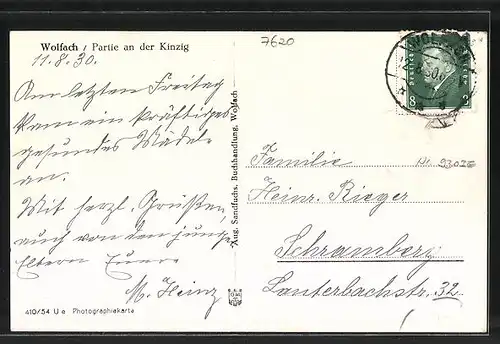 Wolfach / Partie an der Kinzig
11.8.30.
Am letzten Freitag
kam ein kräftiges
gesundes Mädele
an.
Mit herzl. Grüßen,
auch von den jung.
Eltern Euere
M. Heinz
410/54 U e Photographiekarte
Aug. Sandfuchs, Buchhandlung, Wolfach
7620
8
Familie
Nr. 9302E
Heinr. Rieger
Schramberg
Lauterbachstr. 32